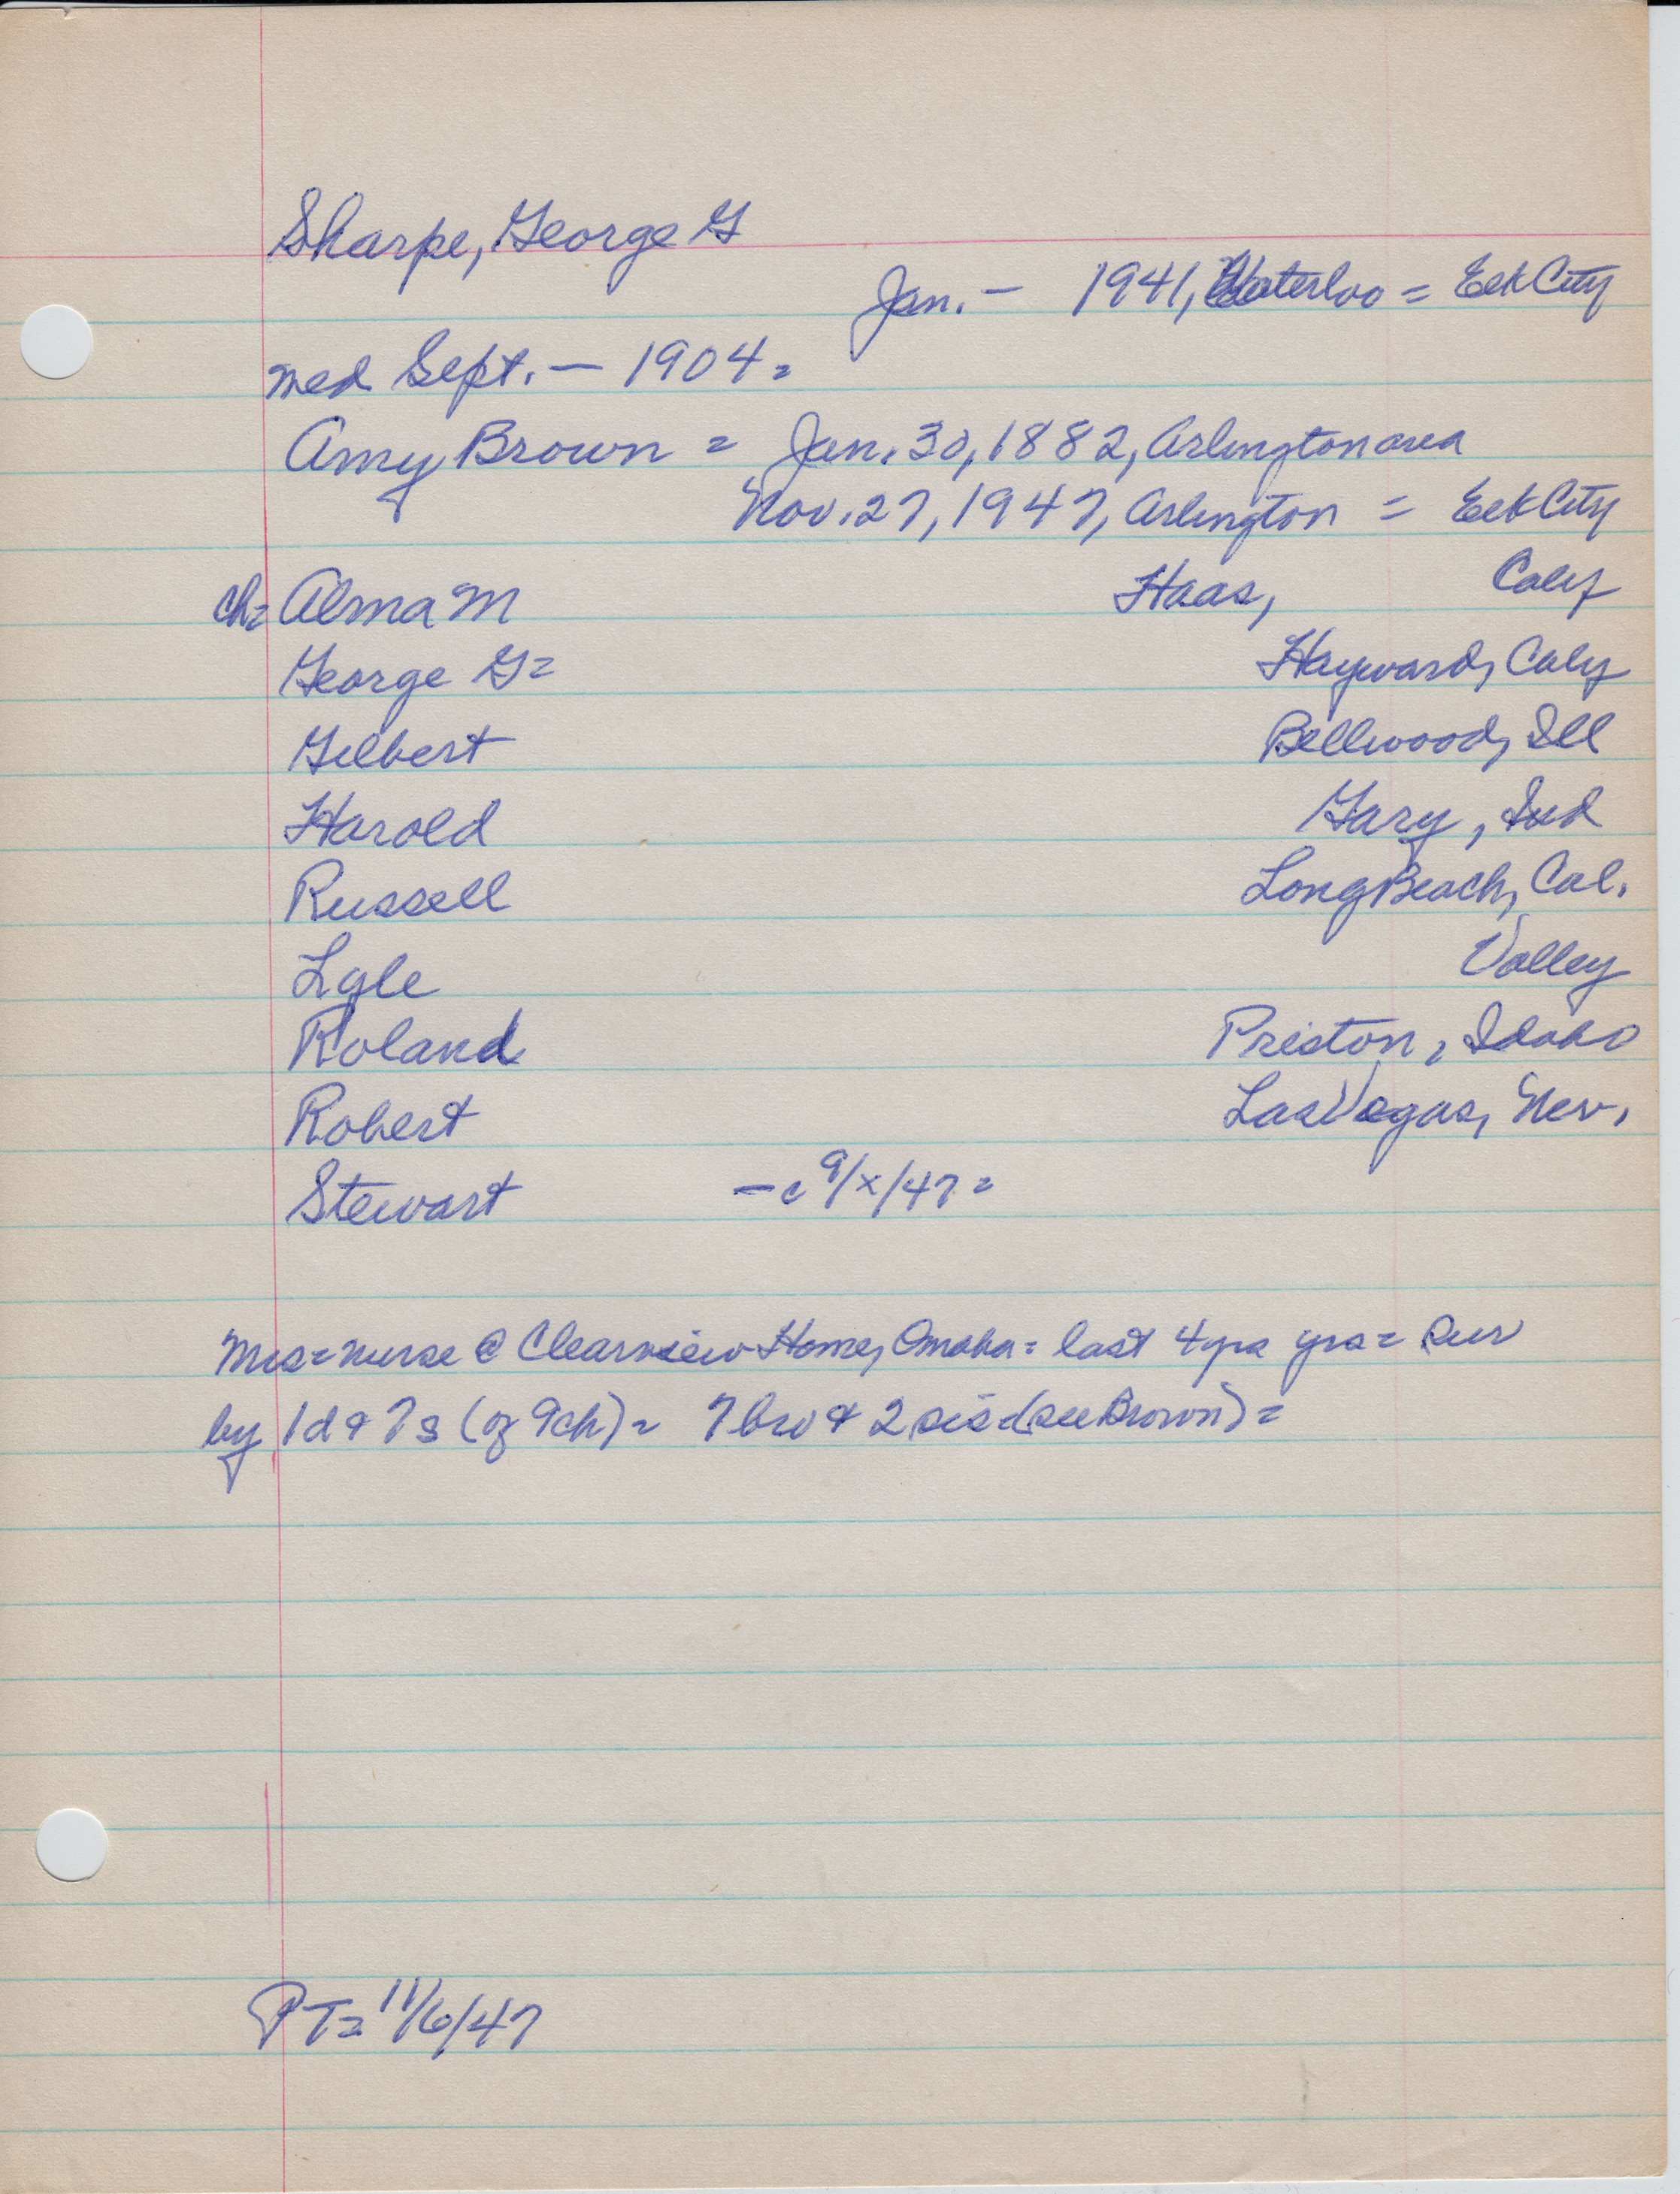 Sharpe, George G
Jan. — 1941, Waterloo = Elk City
med Sept. — 1904 =
Amy Brown = Jan. 30, 1882, Arlington area
Nov. 27, 1947, Arlington = Elk City
ch= Alma M Haas, Calif
George G = Hayward, Calif
Gilbert Bellwood, Ill
Harold Gary, Ind
Russell Long Beach, Cal.
Lyle Valley
Roland Preston, Idaho
Robert Las Vegas, Nev.
Stewart — c 9/x/47 =
Mrs = nurse @ Clearview Home, Omaha = last 4 yrs yrs = sur
by 1 d & 7 s (of 9 ch) = 7 bro & 2 sis = (see Brown) =
PT = 11/6/47